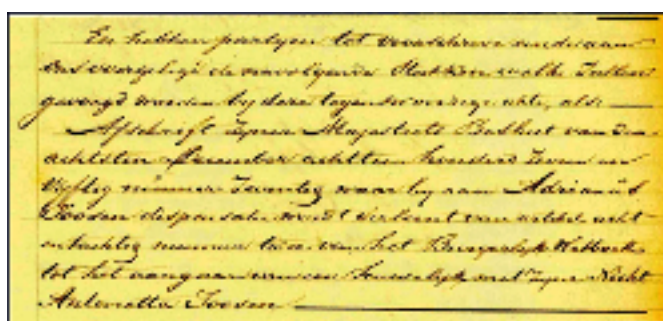 En hebben partyen tot voorschreve einde aan
ons overgelegd de navolgende Stukken welke zullen
gevoegd worden by deze tegenwoordige akte, als
Afschrift Zyner Majesteits Besluit van den
achtsten December achttien honderd zeven en
vyftig nummer Zeventig waar by aan Adrianus
Toosen dispensatie wordt verleent van artikel acht
en tachtig nummer twee van het Burgerlyk Wetboek
tot het aangaan van een huwelyk met zyne Nicht
Antonetta Toosen